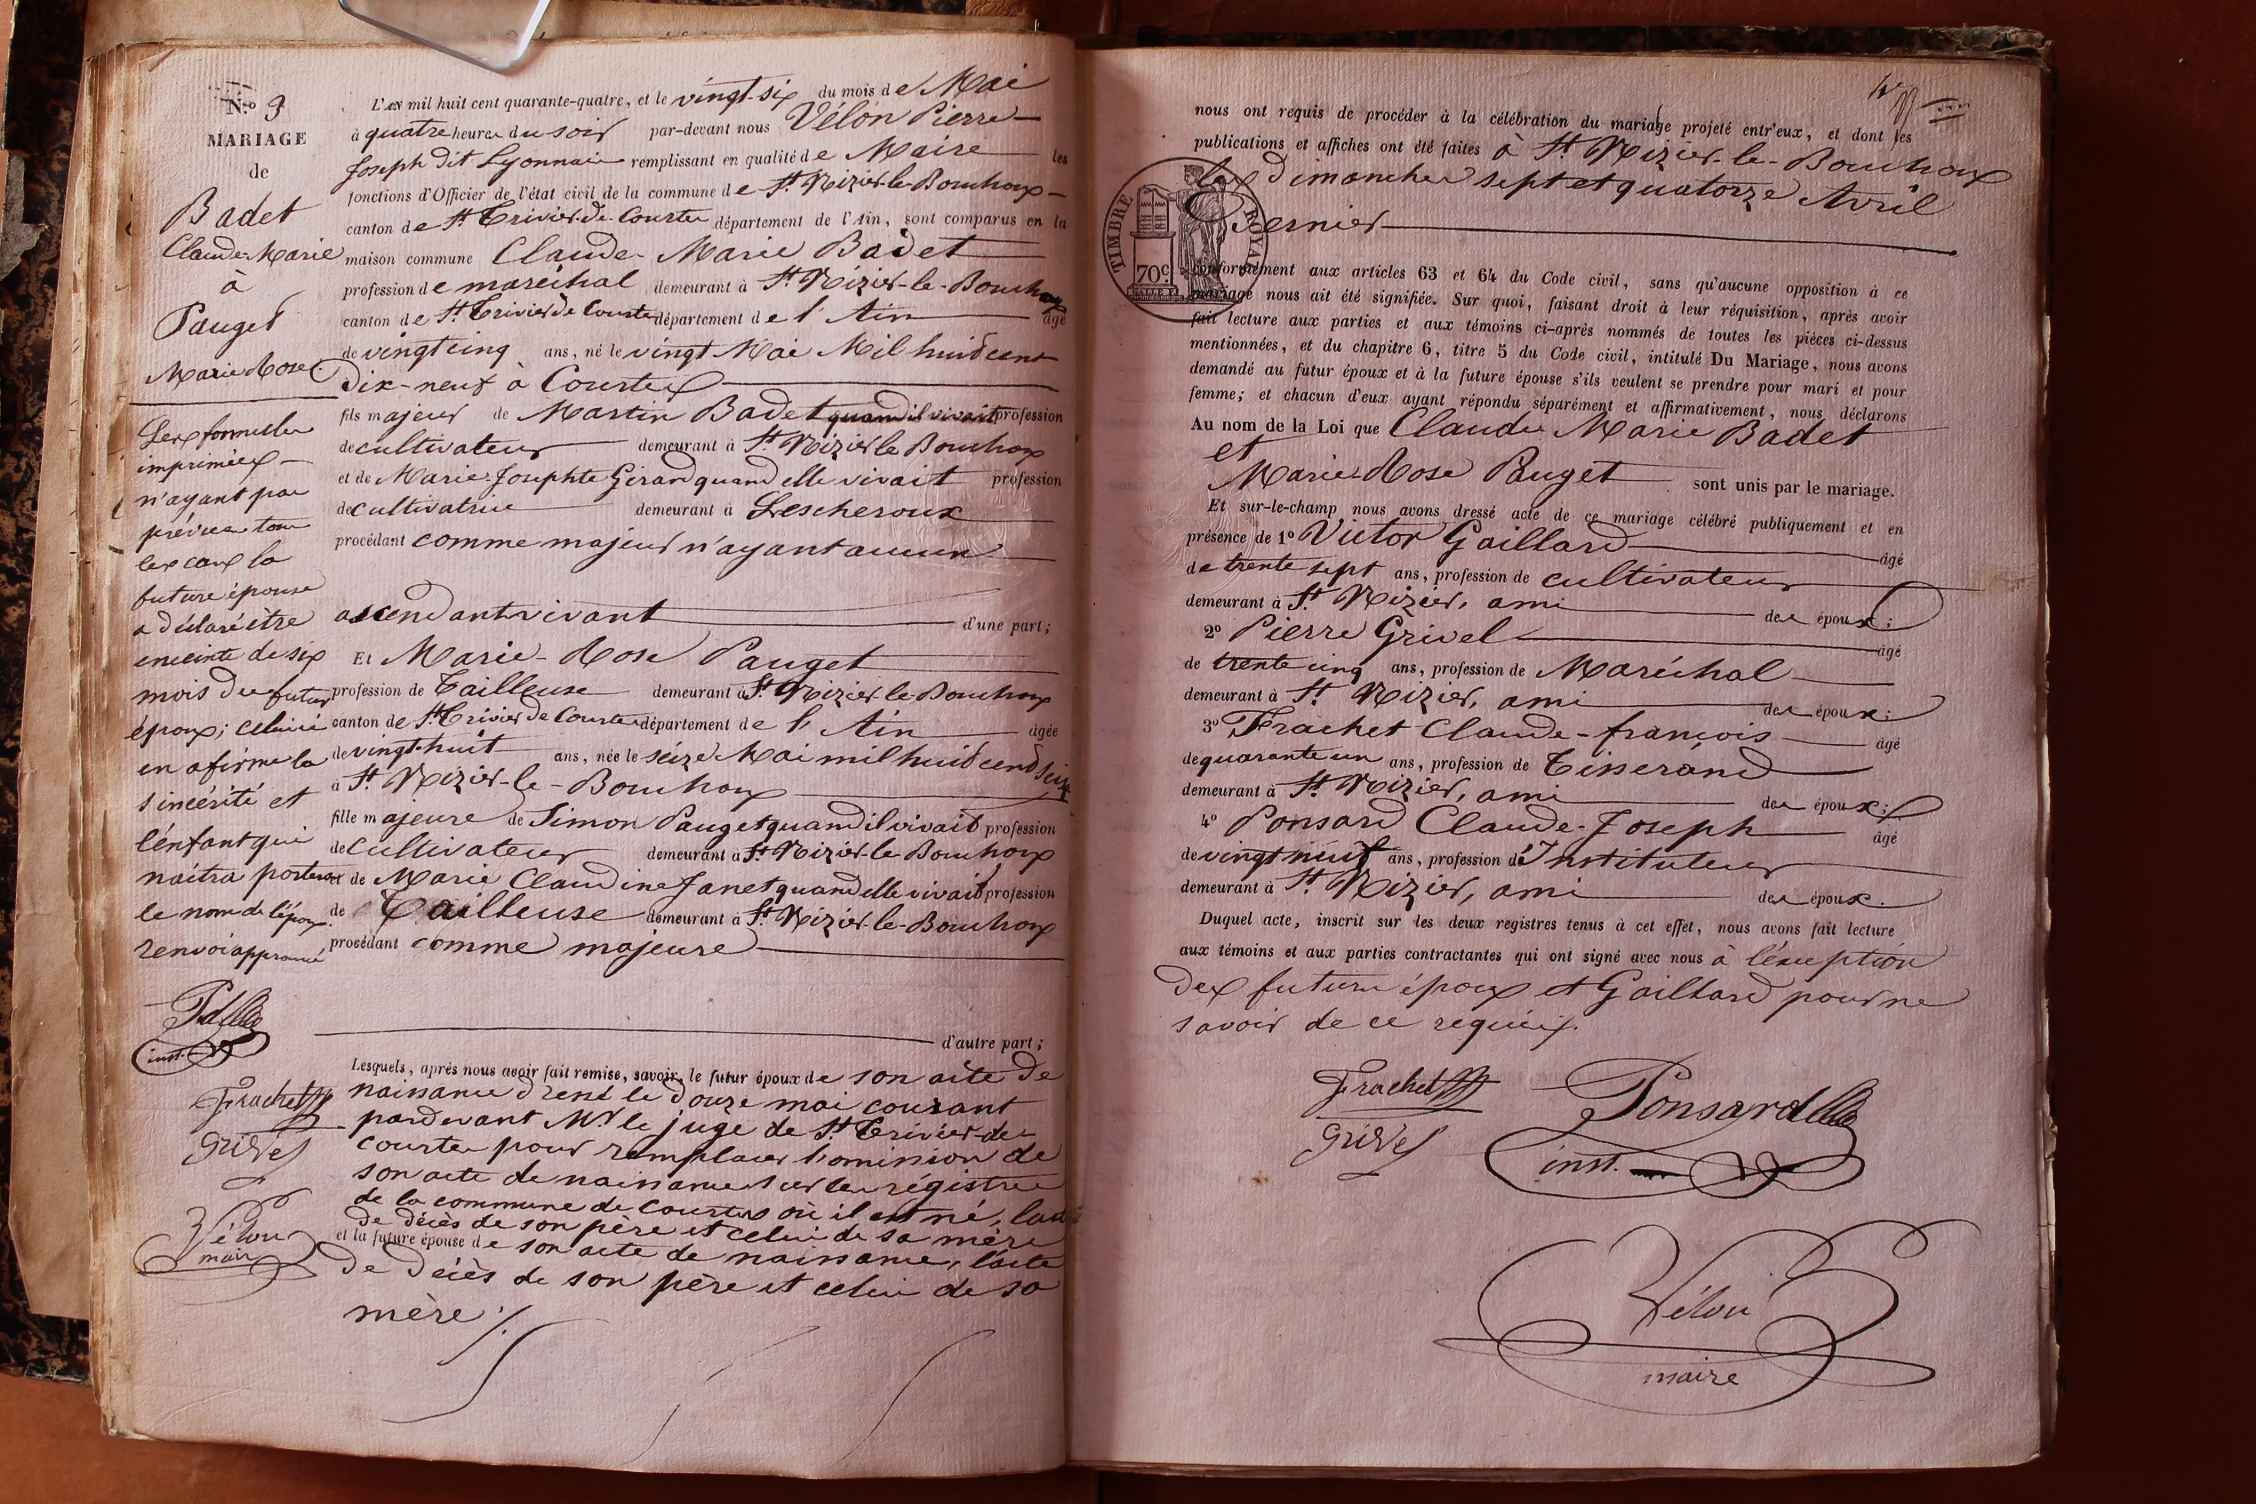 N.º 9
MARIAGE
de
Badet
Claude-Marie
à
Pauget
Marie Rose
Les formules
imprimées
n'ayant pas
prévues tous
les cas la
future épouse
a déclaré être
enceinte de six
mois du futur
époux; celui ci
en afirme la
sincérité et
l'enfant qui
naitra portera
le nom de l'époux.
renvoi approuvé
inst.
Frachet
Grivel
Vélon
maire
L'an mil huit cent quarante-quatre, et le vingt-six du mois de Mai
à quatre heures du soir par-devant nous Vélon Pierre
Joseph dit Lyonnais remplissant en qualité de Maire les
fonctions d'Officier de l'état civil de la commune de St Nizier-le-Bouchoux
canton de St Trivier-de-Courtes département de l'Ain, sont comparus en la
maison commune Claude-Marie Badet
profession de maréchal demeurant à St Nizier-le-Bouchoux
canton de St Trivier de Courtes département de l'Ain âgé
de vingt cinq ans, né le vingt Mai Mil huit cent
dix-neuf à Courtes
fils majeur de Martin Badet quand il vivait profession
de cultivateur demeurant à St Nizier le Bouchoux
et de Marie-Josephte Girard quand elle vivait profession
de cultivatrice demeurant à Lescheroux
procédant comme majeur n'ayant aucun
ascendant vivant d'une part;
Et Marie-Rose Pauget
profession de Tailleuse demeurant à St Nizier-le-Bouchoux
canton de St Trivier de Courtes département de l'Ain âgée
de vingt-huit ans, née le seize Mai mil huit cent seize
à St Nizier-le-Bouchoux
fille majeure de Simon Pauget quand il vivait profession
de cultivateur demeurant à St Nizier-le-Bouchoux
et de Marie Claudine Janet quand elle vivait profession
de Tailleuse demeurant à St Nizier-le-Bouchoux
procédant comme majeure
d'autre part;
Lesquels, après nous avoir fait remise, savoir, le futur époux de son acte de
naissance dressé le douze mai courant
pardevant Mr le juge de St Trivier-de-
Courtes pour remplacer l'omission de
son acte de naissance sur les registres
de la commune de Courtes où il est né, l'acte
de décès de son père et celui de sa mère
et la future épouse de son acte de naissance, l'acte
de décès de son père et celui de sa
mère ./.
nous ont requis de procéder à la célébration du mariage projeté entr'eux, et dont les
publications et affiches ont été faites à St Nizier-le-Bouchoux
les dimanches sept et quatorze Avril
dernier
TIMBRE ROYAL
70c
conformément aux articles 63 et 64 du Code civil, sans qu'aucune opposition à ce
mariage nous ait été signifiée. Sur quoi, faisant droit à leur réquisition, après avoir
fait lecture aux parties et aux témoins ci-après nommés de toutes les pièces ci-dessus
mentionnées, et du chapitre 6, titre 5 du Code civil, intitulé Du Mariage, nous avons
demandé au futur époux et à la future épouse s'ils veulent se prendre pour mari et pour
femme; et chacun d'eux ayant répondu séparément et affirmativement, nous déclarons
Au nom de la Loi que Claude Marie Badet
et
Marie-Rose Pauget sont unis par le mariage.
Et sur-le-champ nous avons dressé acte de ce mariage célébré publiquement et en
présence de 1º Victor Gaillard âgé
de trente sept ans, profession de cultivateur
demeurant à St Nizier, ami des époux;
2º Pierre Grivel âgé
de trente cinq ans, profession de Maréchal
demeurant à St Nizier, ami des époux;
3º Frachet Claude-françois âgé
de quarante un ans, profession de Tisserand
demeurant à St Nizier, ami des époux;
4º Ponsard Claude-Joseph âgé
de vingt neuf ans, profession d'Instituteur
demeurant à St Nizier, ami des époux.
Duquel acte, inscrit sur les deux registres tenus à cet effet, nous avons fait lecture
aux témoins et aux parties contractantes qui ont signé avec nous à l'éxception
des futurs époux et Gaillard pour ne
savoir de ce requis.
Frachet
Ponsard
Grivel
inst.
Vélon
maire